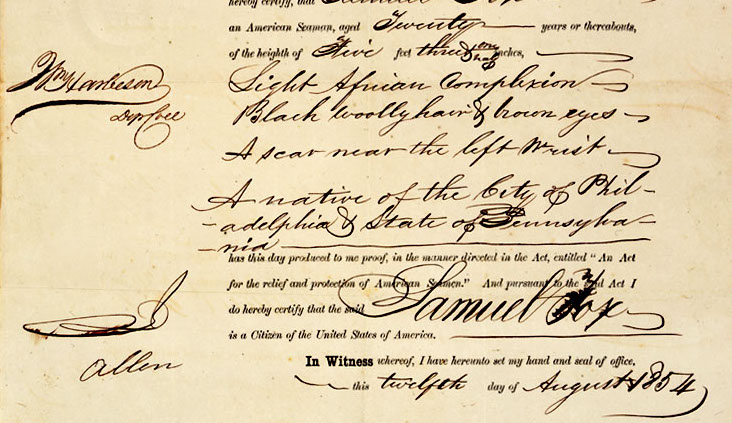 hereby certify, that Samuel Fox
an American Seaman, aged Twenty years or thereabouts,
of the heighth of Five feet three & one half inches,
Wm Harbeson
Light African Complexion
Dep Coll
Black woolly hair & brown eyes
A scar near the left Wrist
A native of the City of Phil-
-adelphia & State of Pennsylva-
-nia
has this day produced to me proof, in the manner directed in the Act, entitled "An Act
for the relief and protection of American Seamen." And pursuant to the said Act I
do hereby certify that the said Samuel Fox
is a Citizen of the United States of America.
In Witness whereof, I have hereunto set my hand and seal of office,
Allen
this twelfth day of August 1854